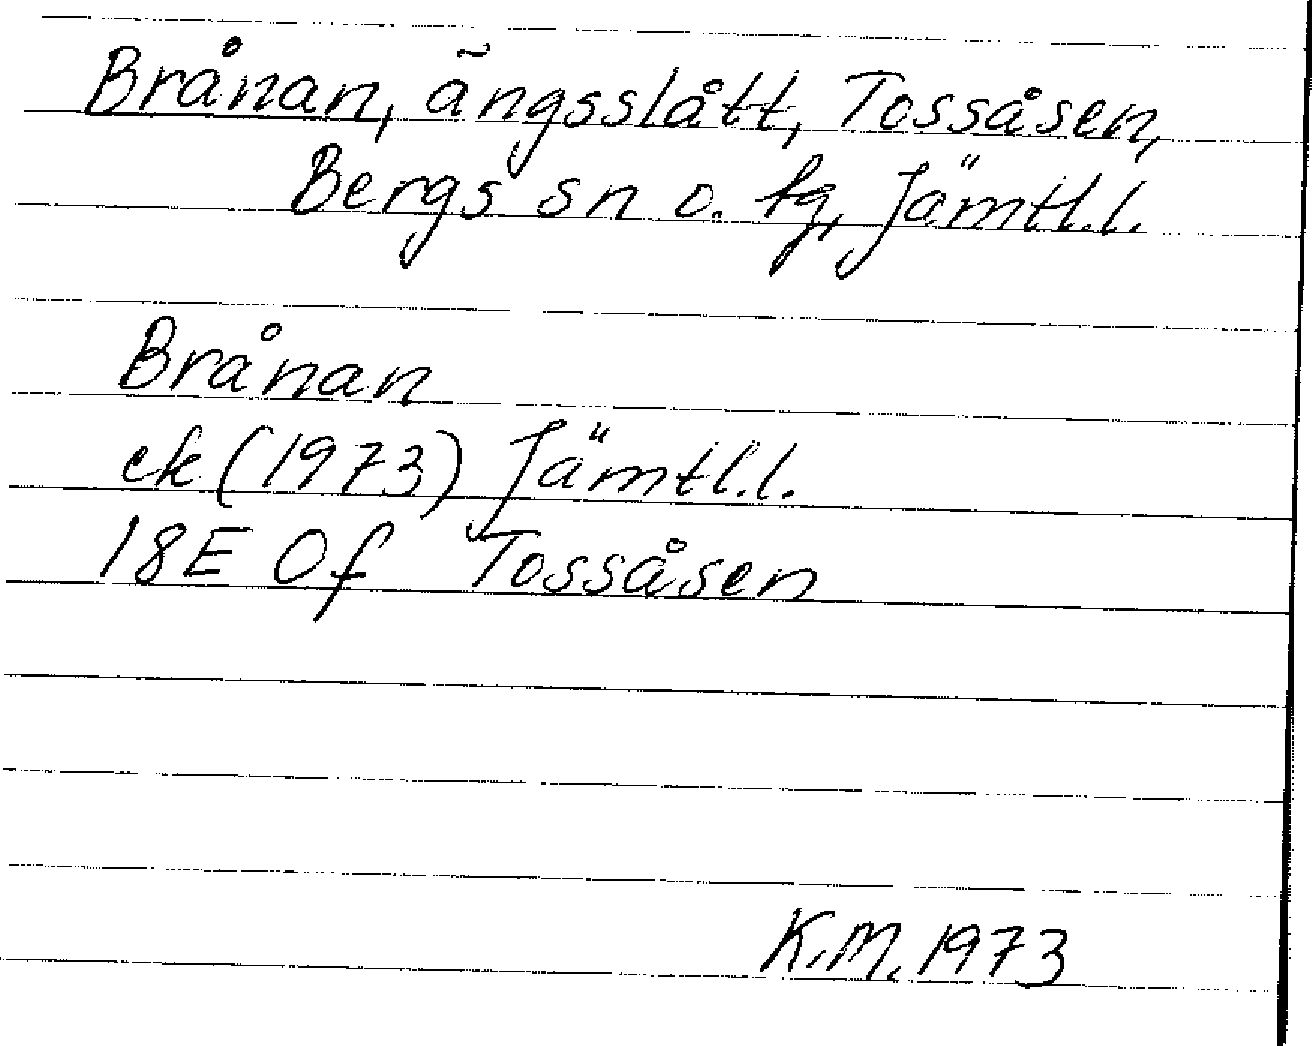 Brånan, ängsslått, Tossåsen,
Bergs sn o. tg, Jämtl.l.
Brånan
ek (1973) Jämtl.l.
18E 0f Tossåsen
K.M. 1973